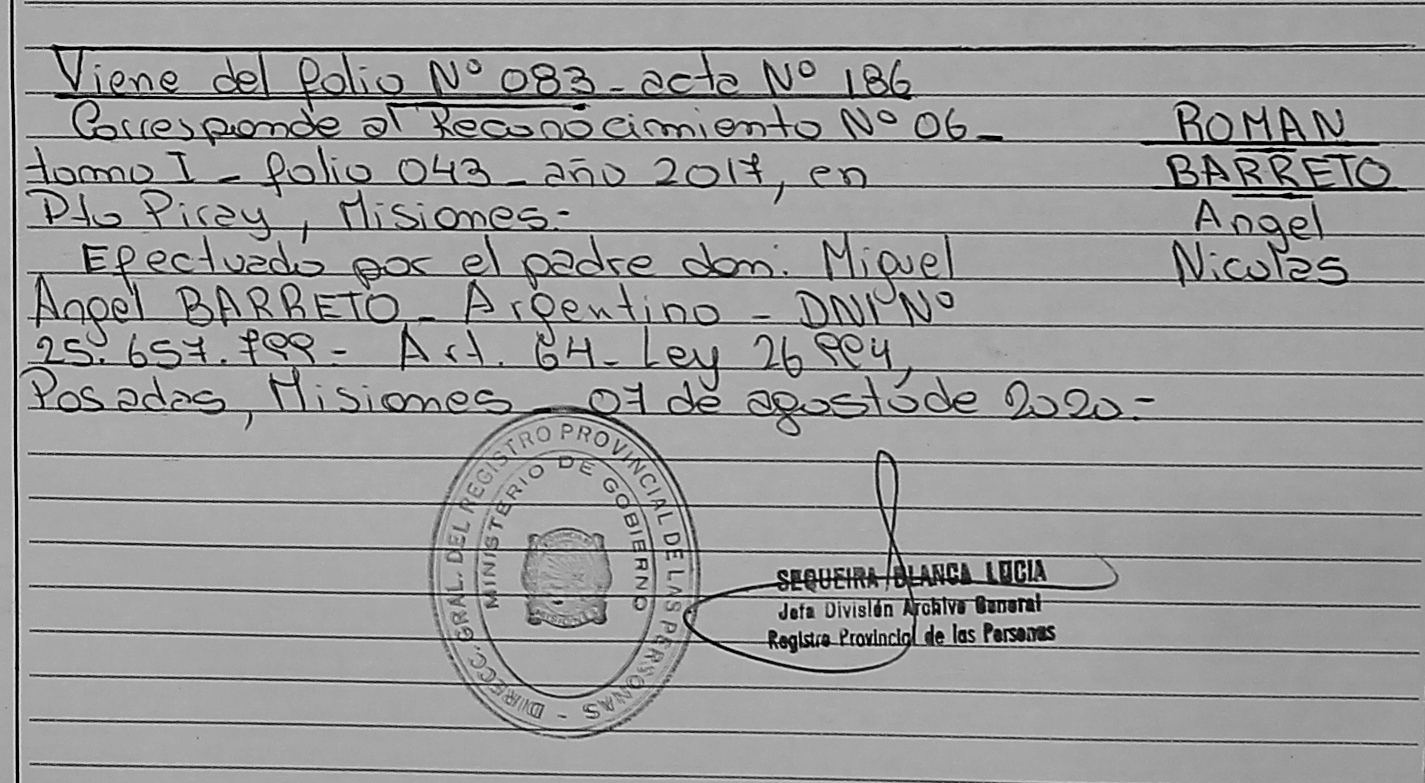 Viene del folio Nº 083 - acta Nº 186
Corresponde al Reconocimiento Nº 06 -
tomo I - folio 043 - año 2017, en
Pto Piray, Misiones.-
Efectuado por el padre don: Miguel
Angel BARRETO - Argentino - DNI Nº
25.657.799 - Art. 64 - Ley 26994,
Posadas, Misiones 07 de agosto de 2020.-
ROMAN
BARRETO
Angel
Nicolas
DIRECC. GRAL. DEL REGISTRO PROVINCIAL DE LAS PERSONAS -
MINISTERIO DE GOBIERNO
MISIONES
SEQUEIRA BLANCA LUCIA
Jefa División Archivo General
Registro Provincial de las Personas